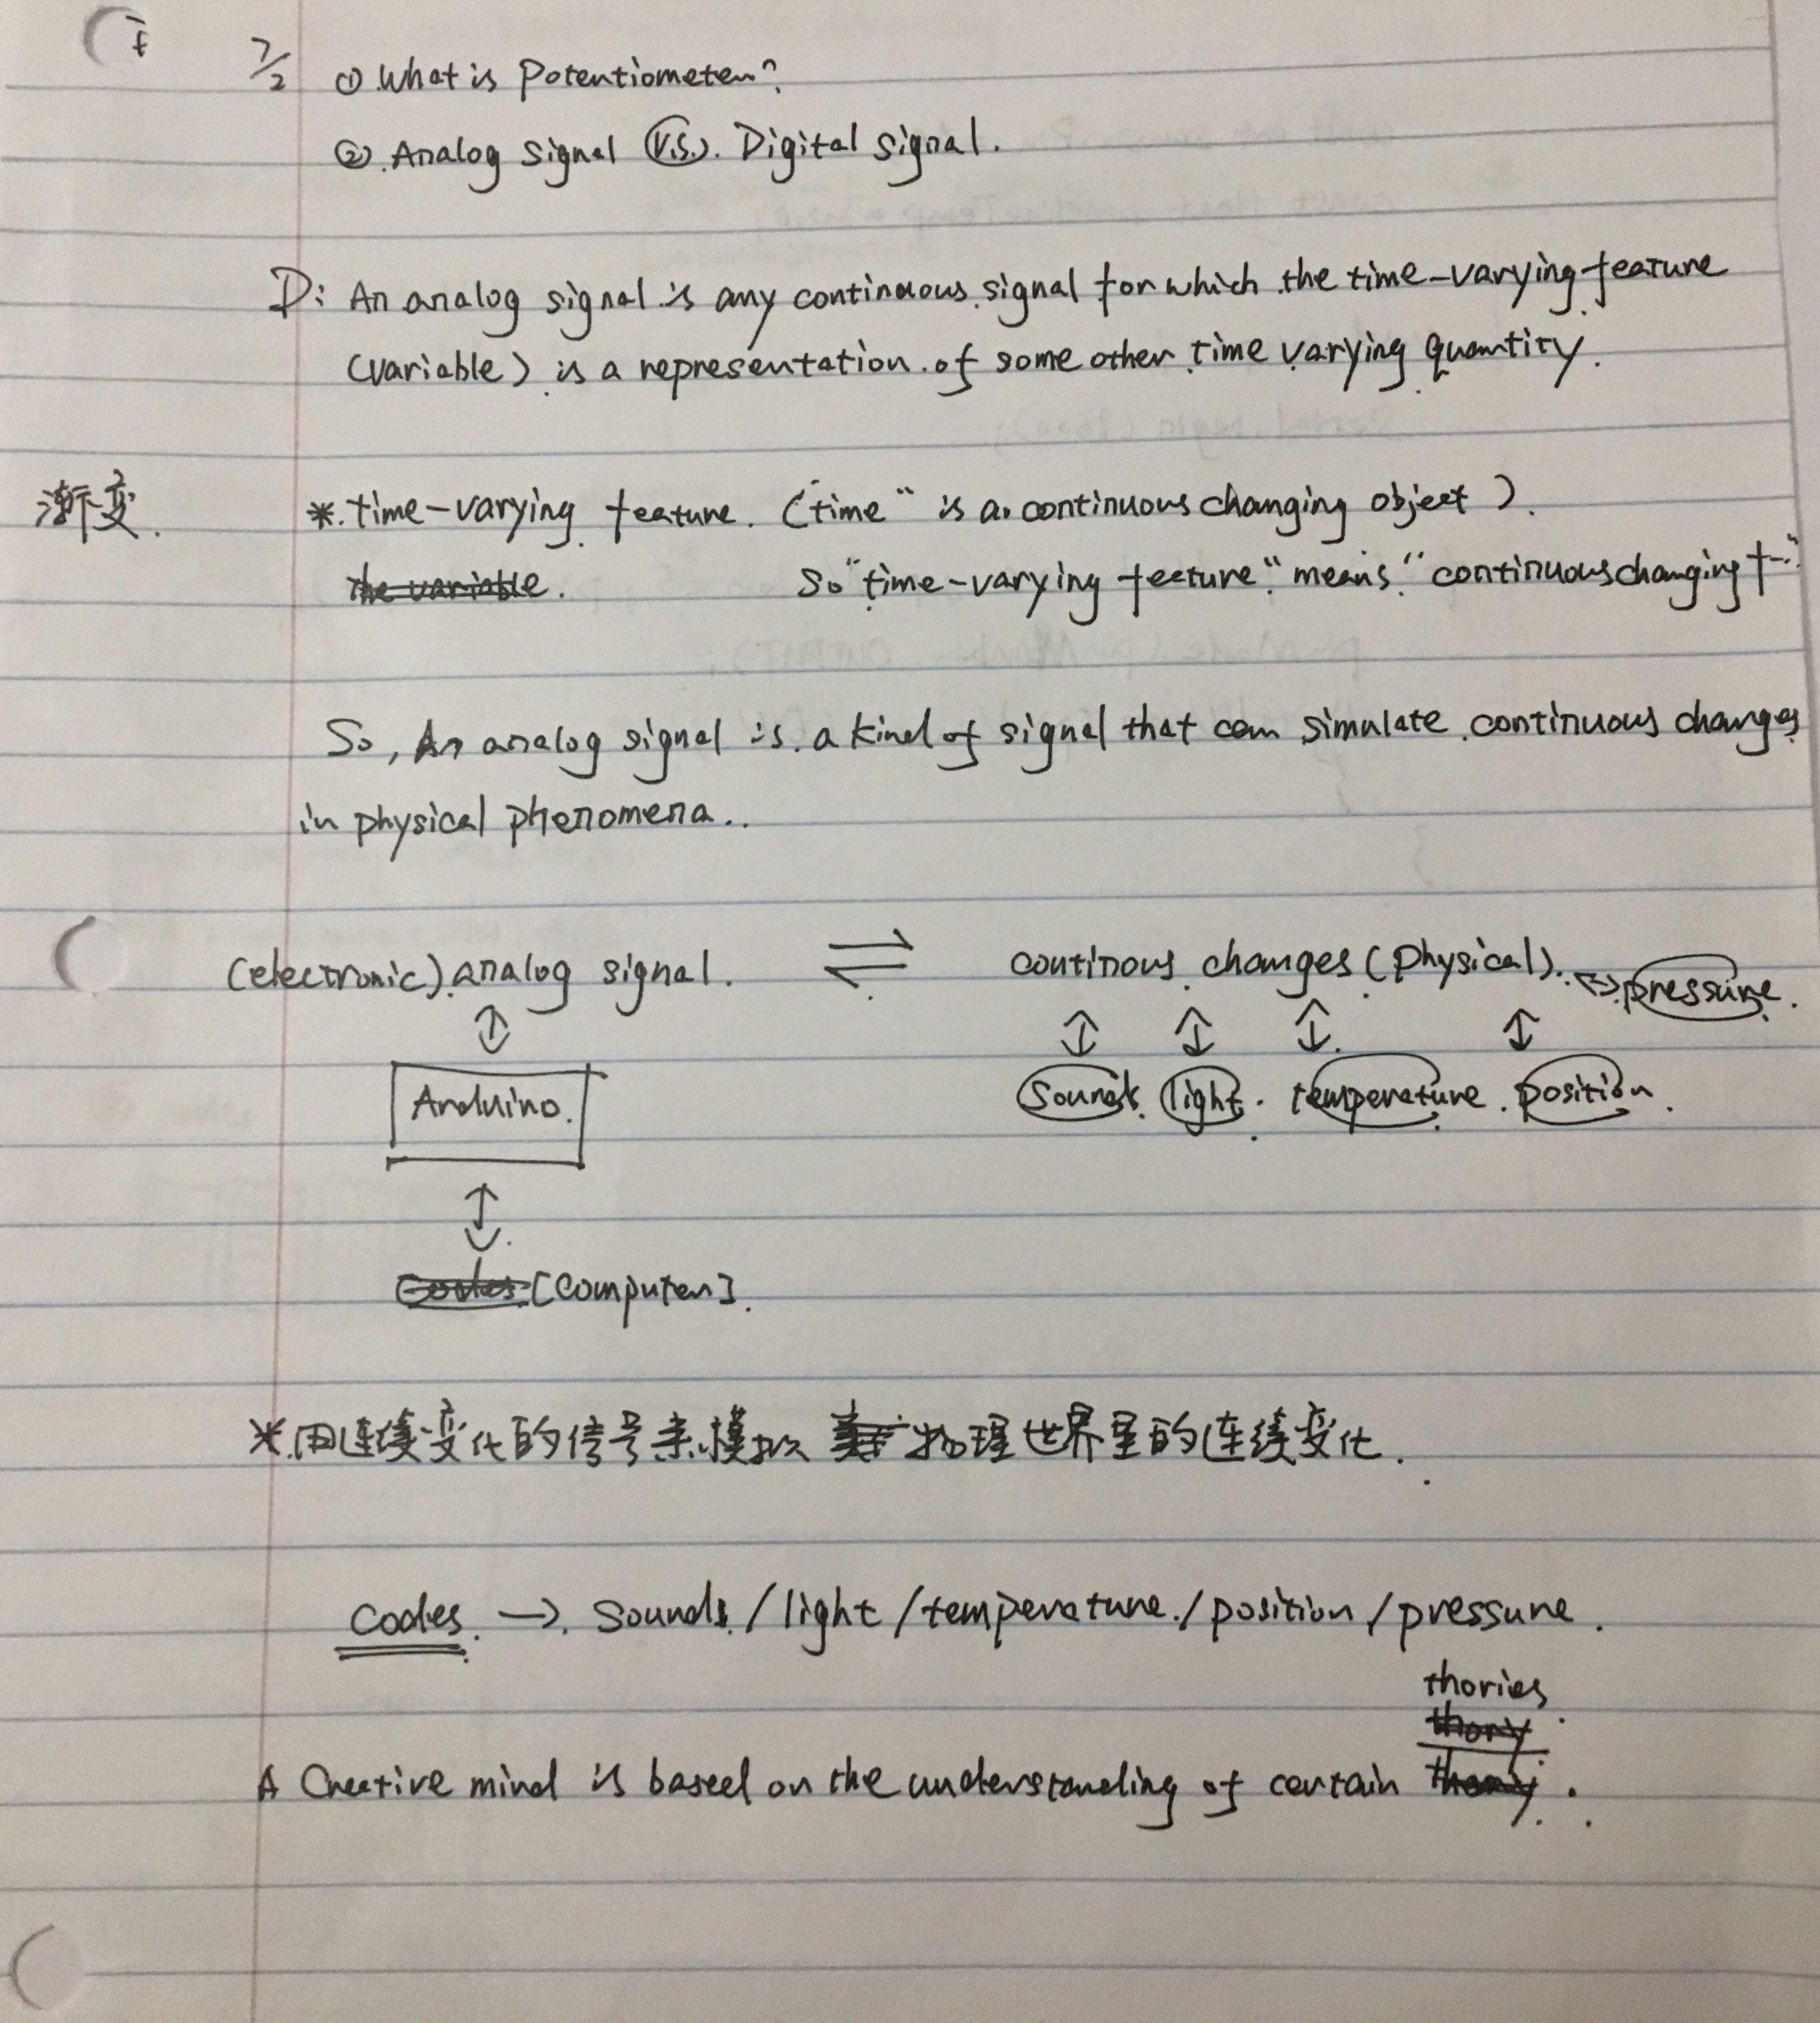 7/2 ① What is Potentiometer?
② Analog Signal V.S. Digital Signal.
D: An analog signal is any continuous signal for which the time-varying feature
(variable) is a representation of some other time varying quantity.
渐变. * time-varying feature. ("time" is a continuous changing object).
the variable. So "time-varying feature" means "continuous changing f-."
So, An analog signal is a kind of signal that can simulate continuous changes
in physical phenomena..
(electronic) analog signal. ⇌ continous changes (Physical). ↔ pressure.
↕ ↕ ↕ ↕ ↕
Arduino. Sounds. light. temperature. position.
↕
Codes [Computer].
* 用连续变化的信号来模拟 物理世界里的连续变化.
Codes. → Sounds / light / temperature. / position / pressure.
thories
thory
A Creative mind is based on the understanding of certain theory.